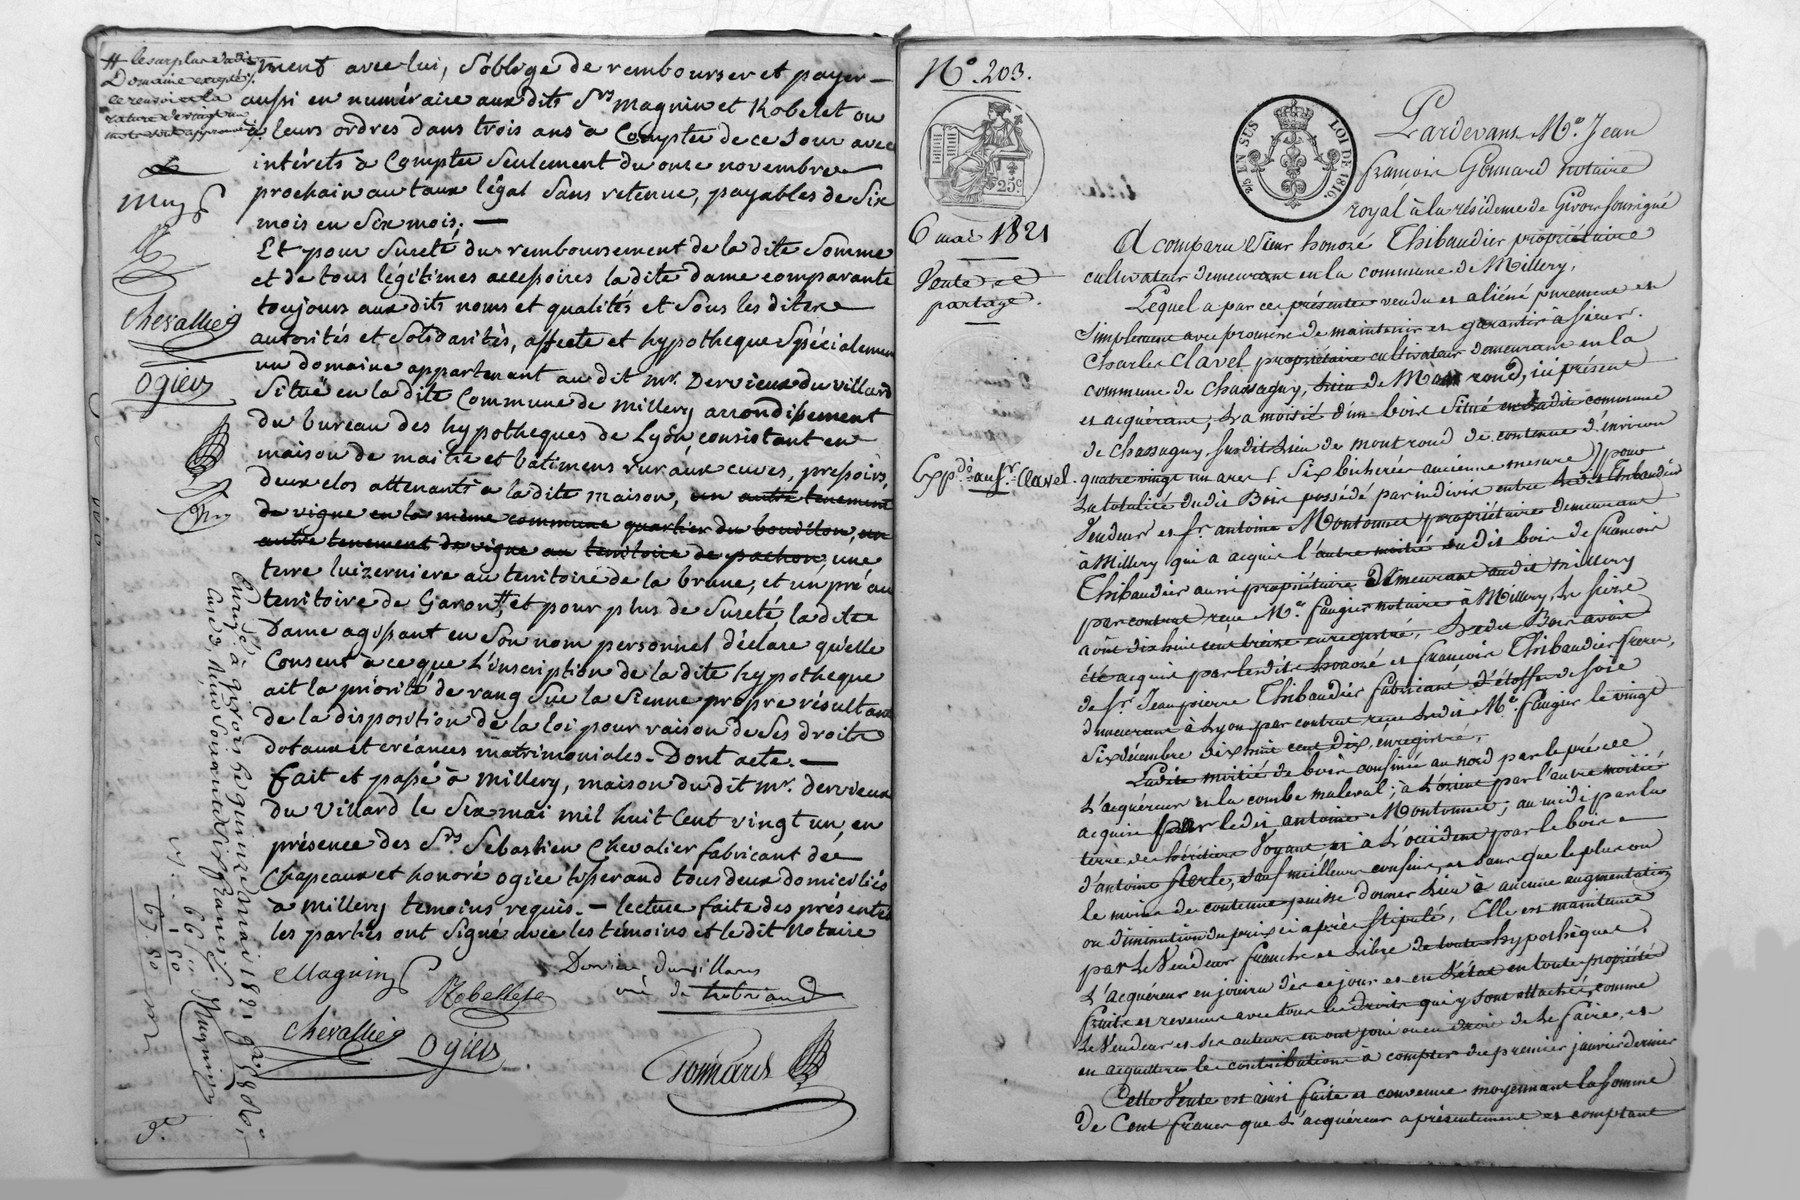 # le surplus dudit
Domaine excepté /.
ce renvoi et la
rature de vingt un
mots sont approuvés
Chevallier
Ogier
ment avec lui, S'oblige de rembourser et payer —
aussi en numéraire aux dits Srs Magnin et Robelet ou
à leurs ordres dans trois ans à Compter de ce Jour avec
intérêts à Compter Seulement du onze novembre
prochain au taux légal Sans retenue, payables de Six
mois en Six mois. —
Et pour Sureté du remboursement de la dite Somme
et de tous légitimes accessoires la dite dame comparante
toujours aux dits noms et qualités et Sous les dites
autorités et Solidarités, affecte et hypotheque Spécialement
un domaine appartenant au dit mr. Dervieux du villard
Situé en la dite Commune de Millery arrondissement
du bureau des hypotheques de Lyon, consistant en
maison de maitre et batimens ruraux cuves, pressoirs,
deux clos attenants à la dite maison, un autre tenement
de vigne en la même commune quartier du bouillon, un
autre tenement de vigne au territoire de pachon, une
terre luizerniere au territoire de la brane, et un pré au
territoire de Garon #, et pour plus de Sureté la dite
Dame agissant en Son nom personnel déclare qu'elle
Consent à ce que L'inscription de la dite hypotheque
ait la priorité de rang Sur la Sienne propre résultant
de la disposition de la loi pour raison de Ses droits
dotaux et créances matrimoniales - Dont acte. —
fait et passé à Millery, maison du dit mr. dervieux
du Villard le Six mai mil huit Cent vingt un, en
présence des Srs Sébastien Chevalier fabricant de
Chapeaux et honoré ogier tisserand tous deux domiciliés
à Millery temoins requis. — lecture faite des présentes
les parties ont Signé avec les témoins et le dit Notaire
Magnin
Robellet
Chevallier
Ogier
Gonnard
Enregé. à givors le quinze mai 1821
N° 203.
25c
6 mai 1821
Vente et
partage.
Expon. au Sr. Clavel.
25 EN SUS
LOI DE 1816.
Pardevant Me. Jean
françois Gonnard notaire
royal à la résidence de Givors soussigné
A comparu Sieur honoré Thibaudier propriétaire
cultivateur demeurant en la commune de Millery,
Lequel a par ces présentes vendu et aliéné purement et
Simplement avec promesse de maintenir et garantir à Sieur
Charles Clavel propriétaire cultivateur demeurant en la
commune de Chassagny, lieu de Mont rond, ici présent
et acquérant, La moitié d'un bois Situé en la dite commune
de Chassagny Susdit Lieu de mont rond de contenue d'environ
quatre vingt un ares ( Six bicherées ancienne mesure ) pour
La totalité dudit Bois possédé par indivis entre Ledit Thibaudier
Vendeur et Sr. antoine Montonnet propriétaire demeurant
à Millery qui a acquis l'autre moitié dudit bois de françois
Thibaudier aussi propriétaire demeurant audit millery
par contrat reçu Me. faugier notaire à Millery, le seize
août dix huit cent treize enregistré, Ledit Bois avoit
été acquis par lesdits honoré et françois Thibaudier freres,
de Sr. Jean pierre Thibaudier fabricant d'étoffes de Soie
demeurant à Lyon par contrat reçu Ledit Me. faugier le vingt
Six décembre dix huit cent dix, enregistré,
Ladite moitié de bois confinée au nord par le pré de
L'acquéreur et la combe maleval; à L'orient par l'autre moitié
acquise par ledit antoine Montonnet; au midi par la
terre des héritiers Voyant et à L'occident par le bois
d'antoine ferle, sauf meilleurs confins, et sans que le plus ou
le moins de contenue puisse donner Lieu à aucune augmentation
ou diminution du prix ci après Stipulé, Elle est maintenue
par Le Vendeur franche et Libre de toute hypothèque.
L'acquéreur en jouira dès ce jour et en L'état en toute propriété
fruits et revenus avec tous les droits qui y sont attachés, comme
Le Vendeur et Ses auteurs en ont joui ou eu droit de Le faire, et
en acquittera les contributions à compter du premier janvier dernier
Cette Vente est ainsi faite et convenue moyennant la Somme
de Cent francs que L'acquéreur a présentement et comptant